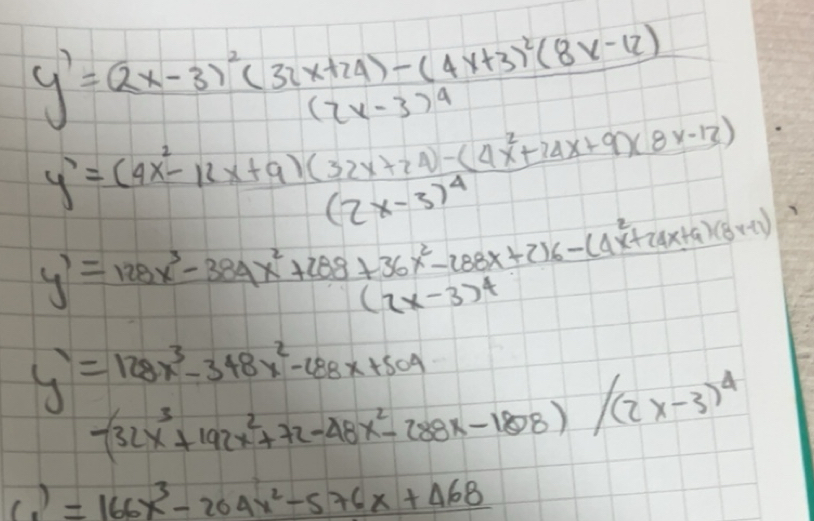 y' = (2x-3)²(32x+24)-(4x+3)²(8x-12)
(2x-3)⁴
y' = (4x²-12x+9)(32x+24)-(4x²+24x+9)(8x-12)
(2x-3)⁴
y' = 128x³-384x²+288+36x²-288x+216-(4x²+24x+9)(8x-12)
(2x-3)⁴
y' = 128x³-348x²-288x+504
-(32x³+192x²+72-48x²-288x-108) /(2x-3)⁴
y' = 166x³-204x²-576x+468